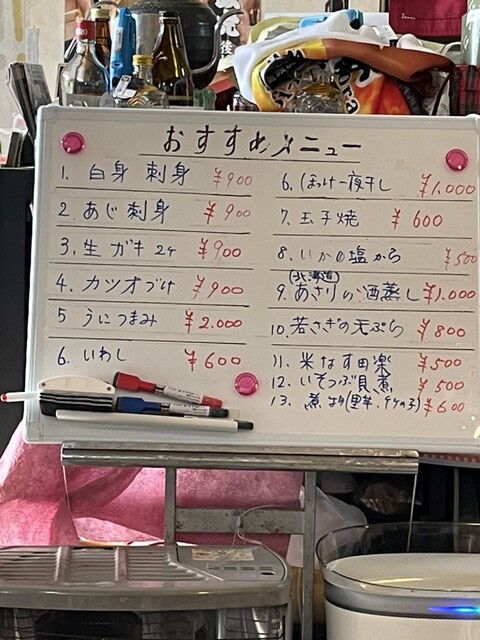 おすすめメニュー
1. 白身 刺身 ¥900
2. あじ刺身 ¥900
3. 生ガキ 2ケ ¥900
4. カツオづけ ¥900
5 うにつまみ ¥2.000
6. いわし ¥600
6. ほっけ一夜干し ¥1.000
7. 玉子焼 ¥600
8. いかの塩から ¥500
(北海道)
9. あさりの酒蒸し ¥1.000
10. 若さぎの天ぷら ¥800
11. 米なす田楽 ¥500
12. いそつぶ貝煮 ¥500
13. 煮物(里芋、竹の子) ¥600